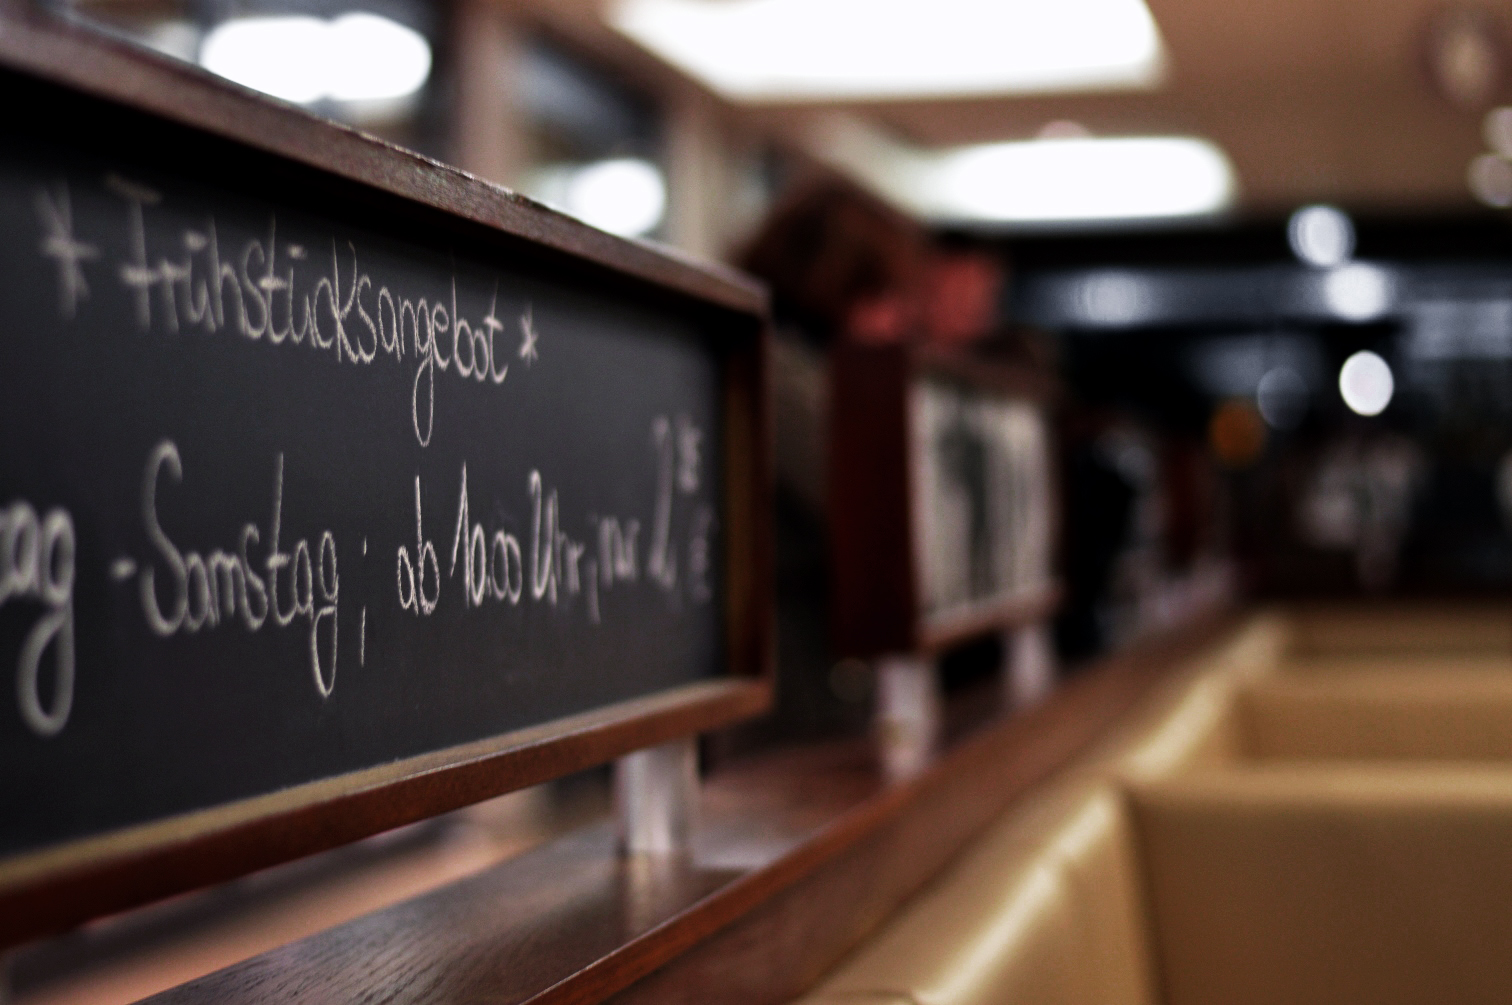 * Frühstücksangebot *
tag - Samstag ; ab 10.00 Uhr, nur